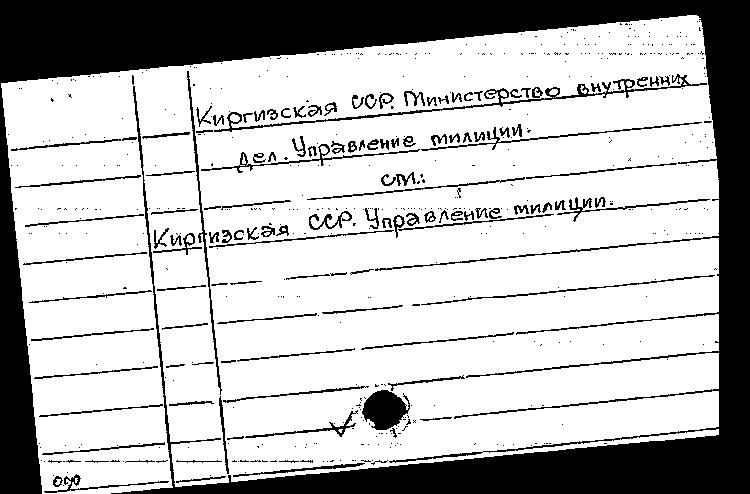 Киргизская ССР. Министерство внутренних
дел. Управление милиции.
см.:
Киргизская ССР. Управление милиции.